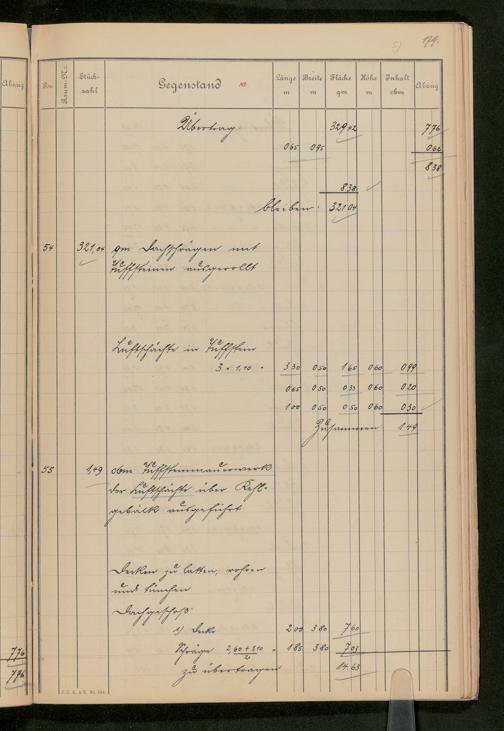 179.
Pos. Raum-Nr. Stück-zahl Gegenstand Länge m Breite m Fläche qm Höhe m Inhalt cbm Abzug
Übertrag: 329 42 7 76
0 65 0 95 0 62
8 38
8 38
bleiben: 321 04
54 321,04 qm Dachschrägen mit
Tuffsteinen ausgerollt
Luftschächte in Tuffstein
3 · 1,10 = 3 30 0 50 1 65 0 60 0 99
0 65 0 50 0 33 0 60 0 20
1 00 0 50 0 50 0 60 0 30
Zusammen 1 49
55 1,49 cbm Tuffsteinmauerwerk
der Luftschächte über Kehl-
gebälk ausgeführt
Decken zu latten, rohren
und tünchen
Dachgeschoß:
1) Decke 2 00 3 80 7 60
Schräge 2,60 + 3,10 / 2 = 1 85 3 80 7 03
zu übertragen 14 63
Abzug
7 76
7 76